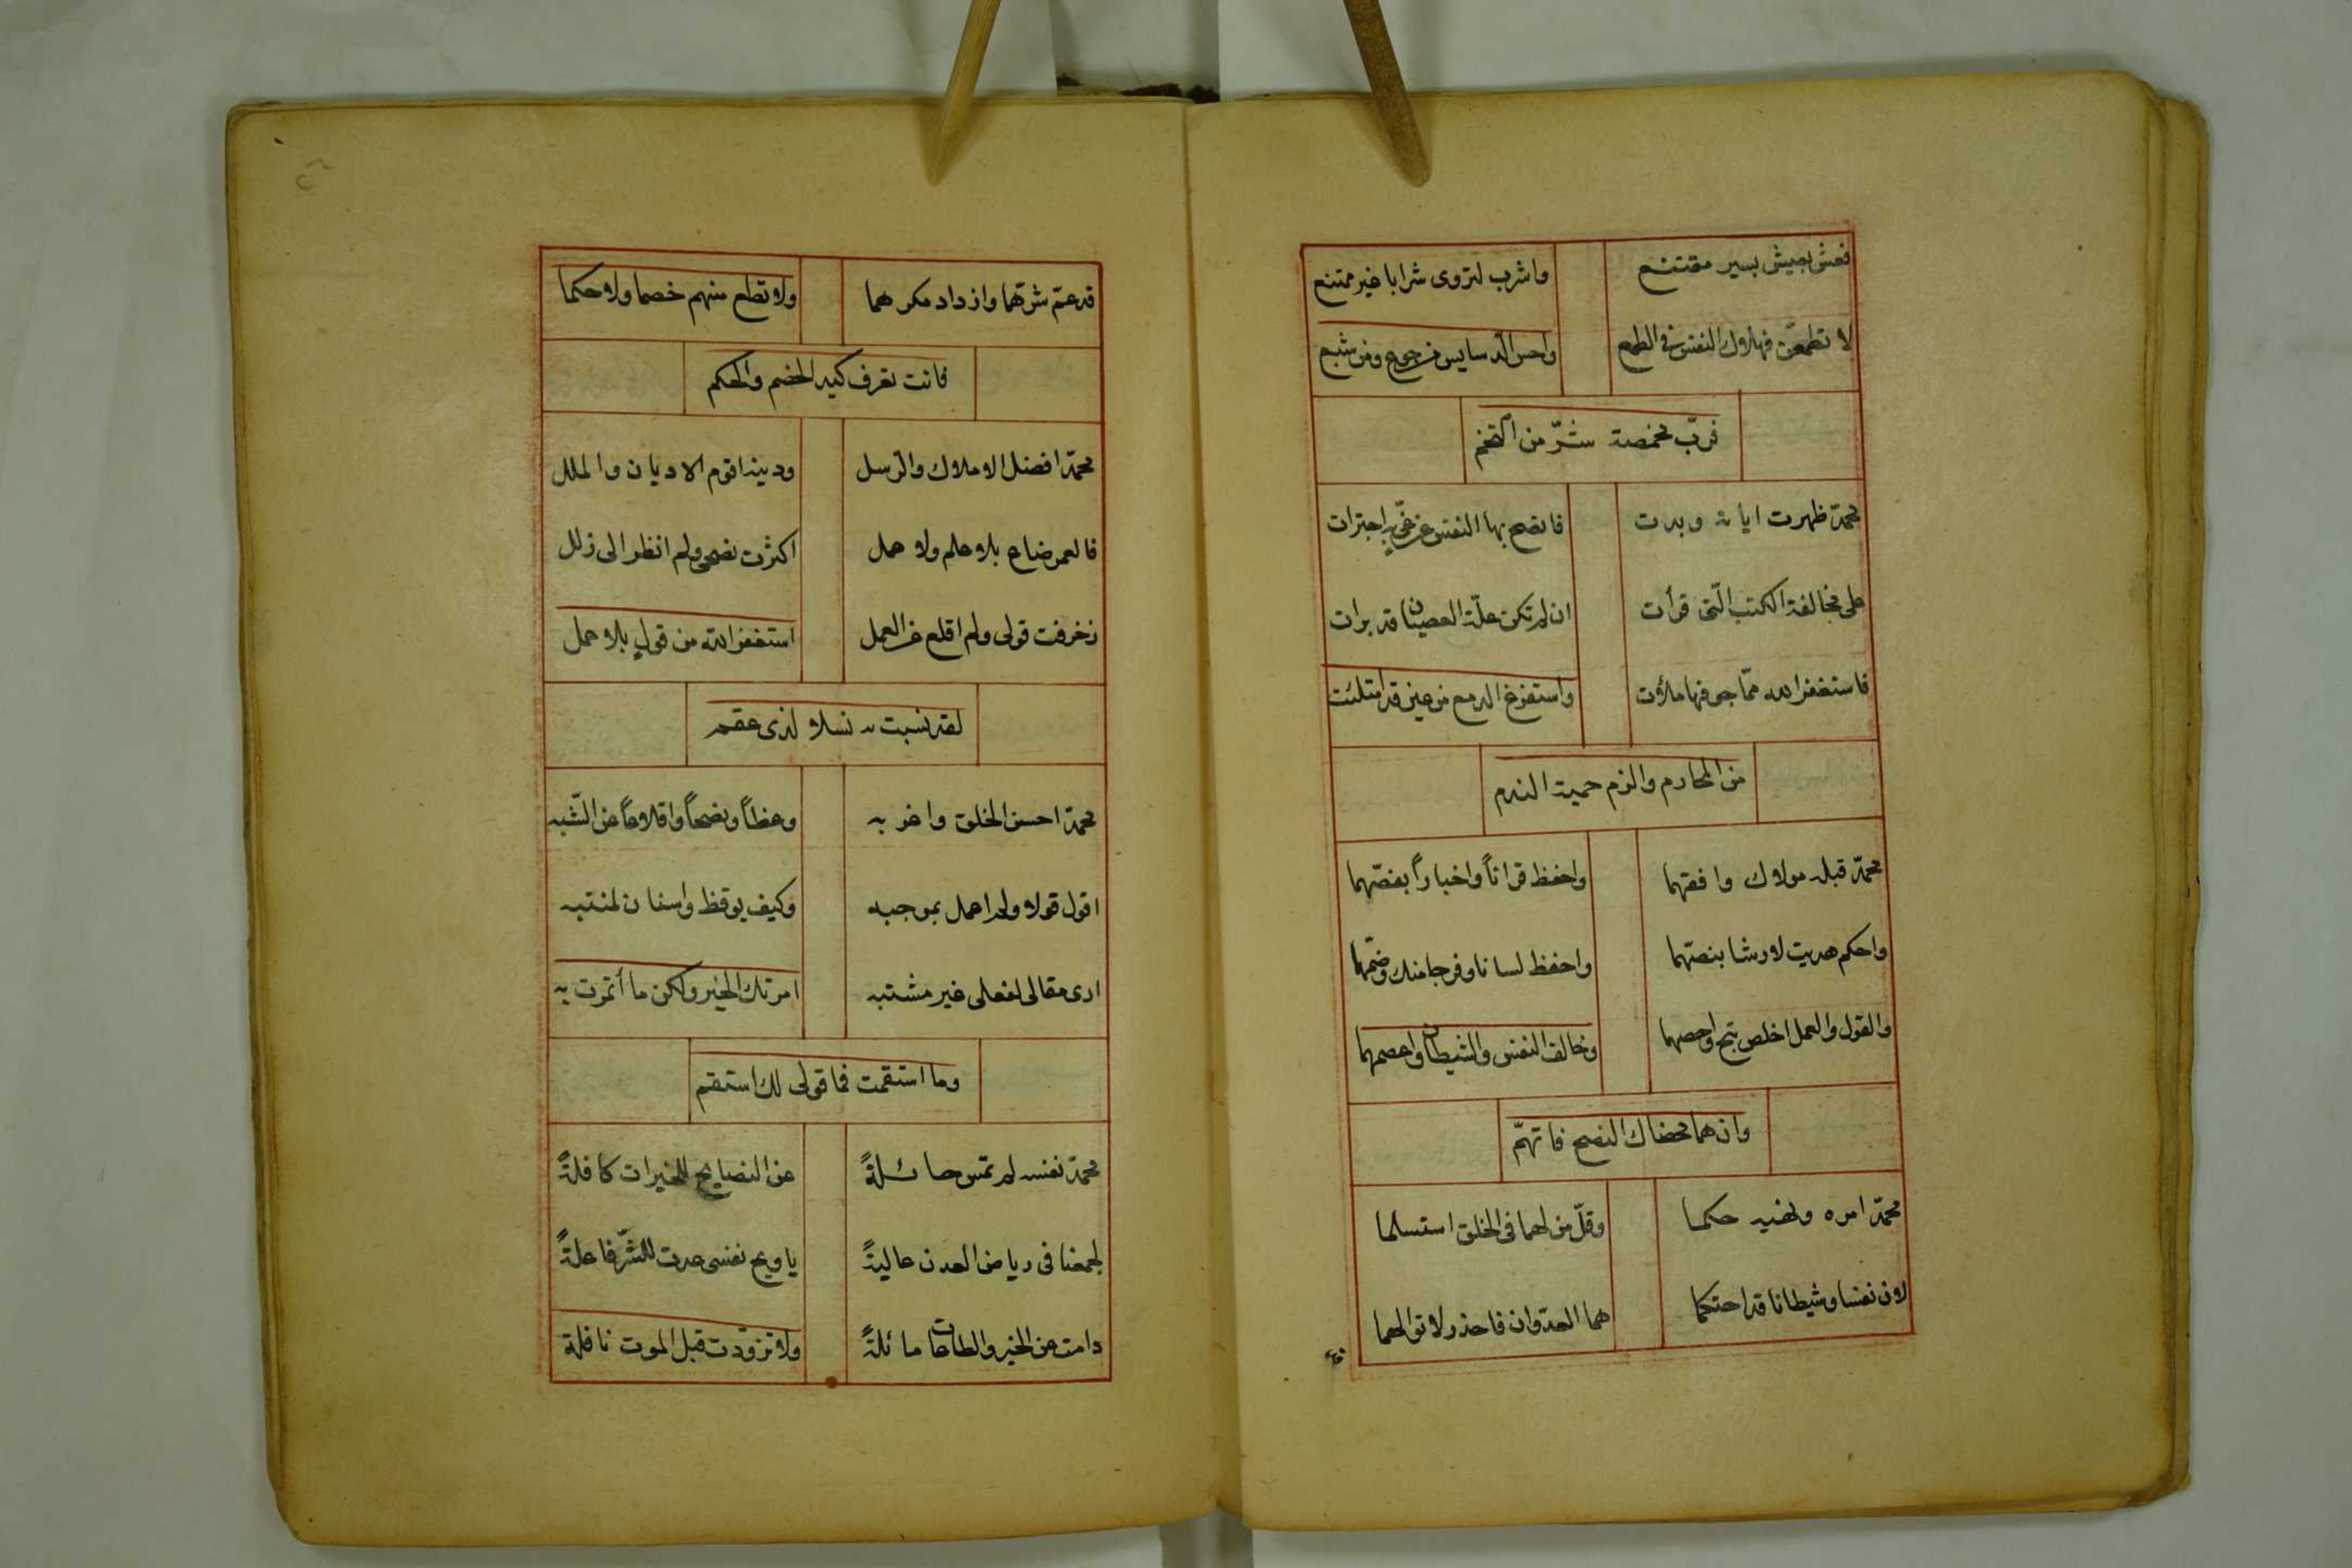 فعش بعيش يسير مقتنع واشرب لتروى شرابا غير ممتنع
لا تطمعن فهلاك النفس فى الطمع واخش الدسايس من جوع ومن شبع
فربّ مخمصة شرّ من التخم
محمد ظهرت اياته وبدت فانصح بها النفس عن غىّ اجترات
على مخالفة الكتب الّتى قرأت ان لم تكن علّة العصيان قد برات
فاستغفر الله ممّا جوفها ملأت واستفرغ الدمع من عين قد امتلئت
من المحارم والزم حمية الندم
محمّد قبله مولاك وافقهما واحفظ قراناً واخباراً بفصّهما
واحكم هديت لارشا بنصّهما واحفظ لسانا وفرجا منك وضمّهما
والقول والعمل اخلص واحصهما وخالف النفس والشيطان واعصهما
وان هما محضاك النصح فاتهم
محمّد امره ولهيه حكما وقلّ من لهما فى الخلق استسلما
لان نفسا وشيطانا قد احتكما هما العدوان فاحذر لا توالهما
قد
قد عمّ شرّهما وازداد مكرهما ولا تطع منهم خصما ولا حكما
فانت تعرف كيد الخصم والحكم
محمّد افضل الاملاك والرّسل ودينه اقوم الاديان والملل
فالعمر ضاع بلا علم ولا عمل اكثرت نصحى ولم انظر الى زلل
زخرفت قولى ولم اقلع عن العمل استغفر الله من قول بلا عمل
لقد نسبت به نسلا لذى عقم
محمّد احسن الخلق واغر به وعظاً ونصحاً واقلاعاً عن الشّبه
اقول قولا ولم اعمل بموجبه وكيف يوقظ واسنان لمنتبه
ارى مقالى لفعلى غير مشتبه امرتك الخير ولكن ما أتمرت به
وما استقمت فما قولى لك استقم
محمّد نفسه لم تمس حائلةً عن النصايح للخيرات كافلةً
لجمعنا فى رياض العدن عاليةً يا ويح نفسى عدت للشرّ فاعلةً
دامت عن الخير والطاعات مائلةً ولا تزوّدت قبل الموت نافلة